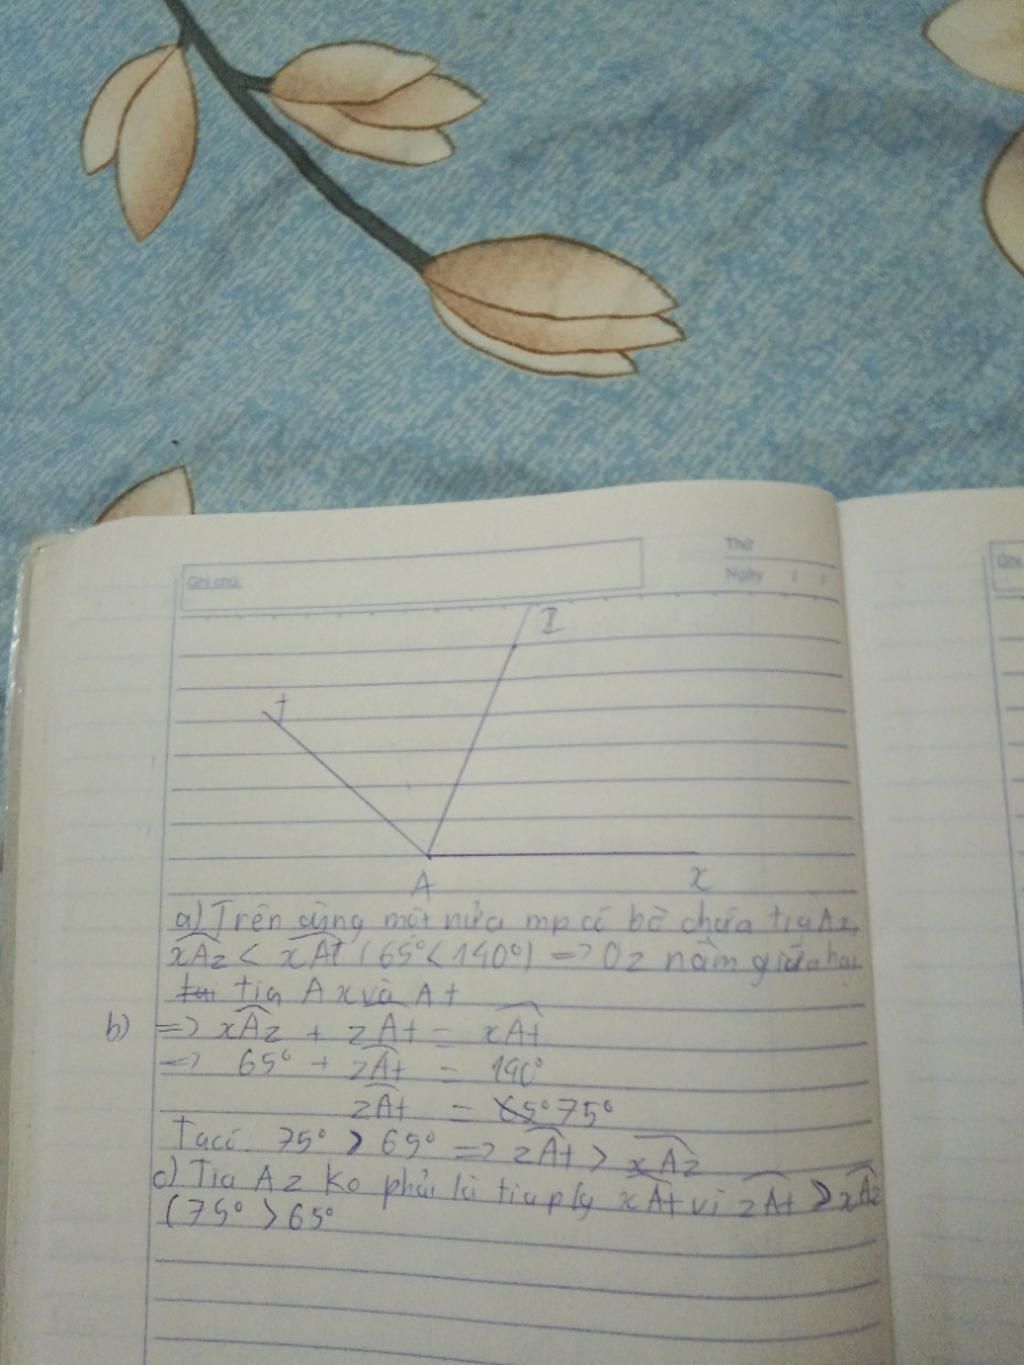 Ghi chú:
Thứ
Ngày / /
Ghi
z
t
A
x
a) Trên cùng một nửa mp có bờ chứa tia Ax,
xAz < xAt (65° < 140°) => Oz nằm giữa hai
tia Ax và At
b) => xAz + zAt = xAt
=> 65° + zAt = 140°
zAt = 75°
Ta có 75° > 65° => zAt > xAz
c) Tia Az ko phải là tia p/g xAt vì zAt > xAz
(75° > 65°